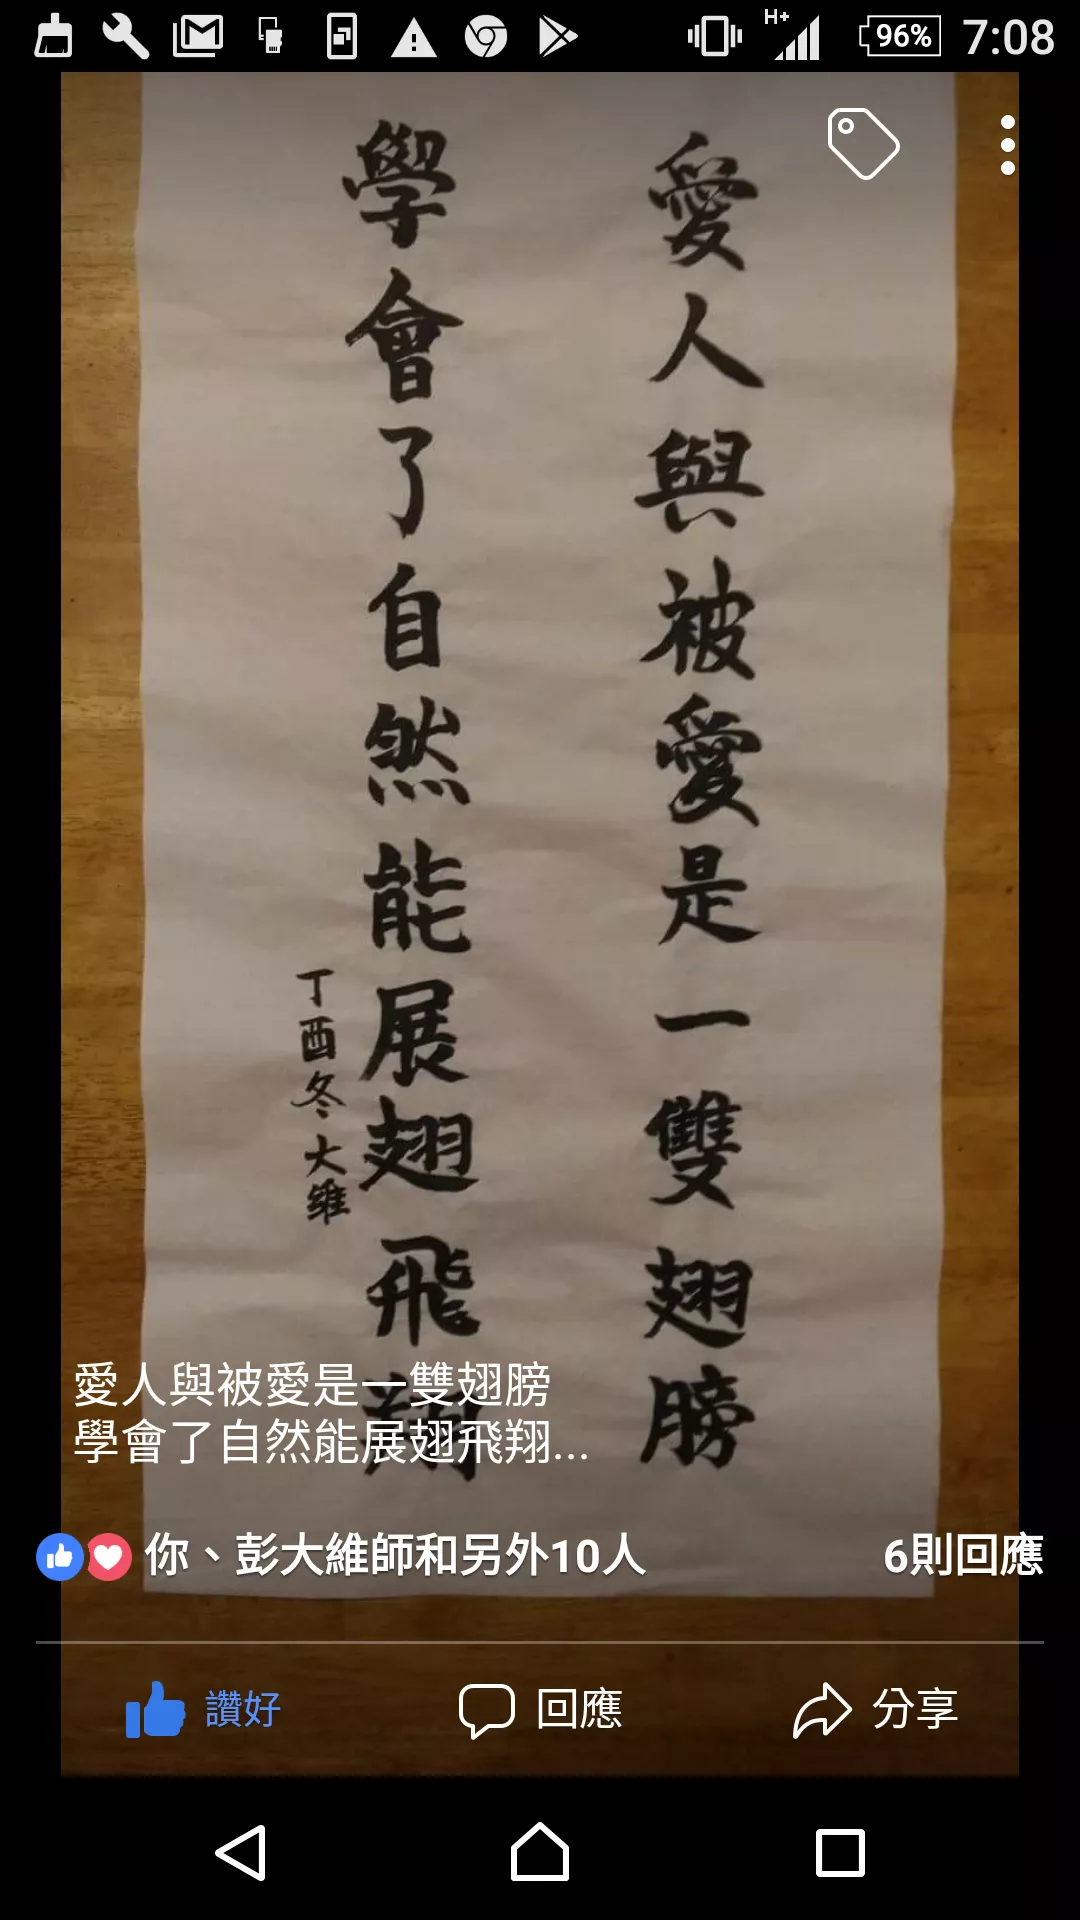 H+
96%
7:08
愛人與被愛是一雙翅膀
學會了自然能展翅飛翔
丁酉冬大維
愛人與被愛是一雙翅膀
學會了自然能展翅飛翔...
你、彭大維師和另外10人
6則回應
讚好
回應
分享